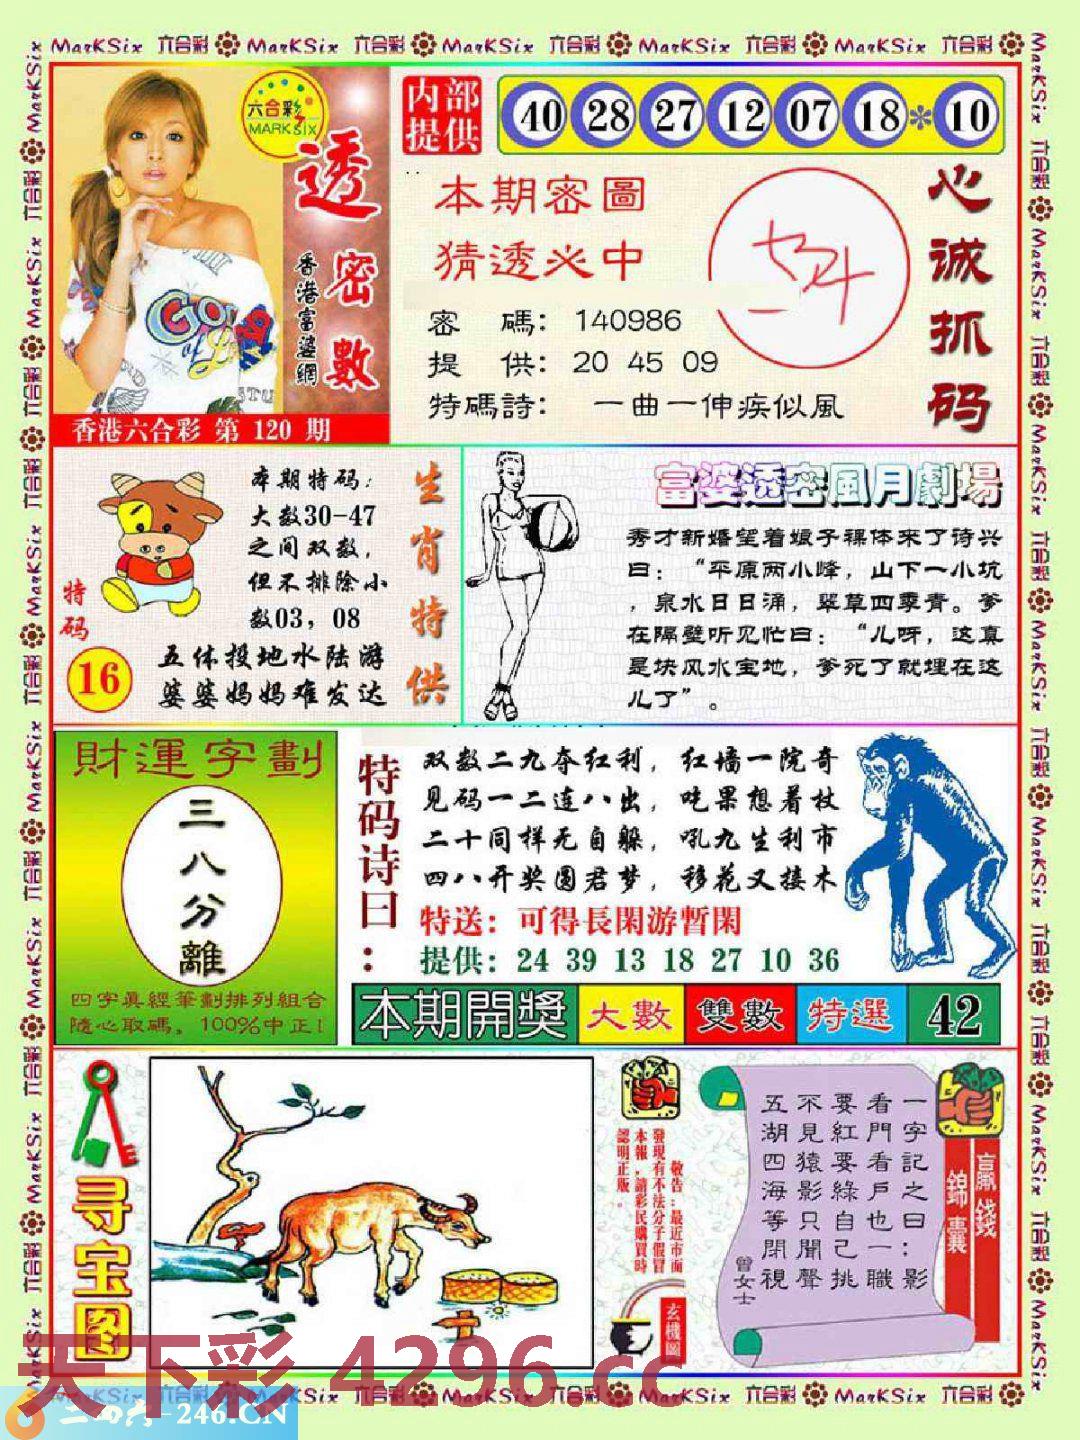 MarKSix 六合彩 MarKSix 六合彩 MarKSix 六合彩 MarKSix 六合彩 MarKSix 六合彩
六合彩
MARK SIX
透密數
香港富婆網
香港六合彩 第 120 期
内部
提供
40 28 27 12 07 18 * 10
本期密圖
猜透必中
密 碼: 140986
提 供: 20 45 09
特碼詩: 一曲一伸疾似風
心诚抓码
特码
16
本期特码:
大数30-47
之间双数,
但不排除小
数03, 08
五体投地水陆游
婆婆妈妈难发达
生肖特供
富婆透密風月劇場
秀才新婚望着娘子裸体来了诗兴
曰: “平原两小峰, 山下一小坑
, 泉水日日涌, 翠草四季青。爹
在隔壁听见忙曰: “儿呀, 这真
是块风水宝地, 爹死了就埋在这
儿了”。
財運字劃
三八分離
四字眞經筆劃排列組合
隨心取碼, 100%中正!
特码诗曰:
双数二九夺红利, 红墙一院奇
见码一二连八出, 吃果想着杖
二十同样无自躲, 吼九生利市
四八开奖圆君梦, 移花又接木
特送: 可得長閑游暫閑
提供: 24 39 13 18 27 10 36
本期開獎 大數 雙數 特選 42
寻宝图
敬告:最近市面
發現有不法分子假冒
本報,請彩民購買時
認明正版。
玄機圖
一字記之曰:影
看門看戶也一職
要紅要綠自己挑
不見猿影只聞聲
五湖四海等閑視
曾女士
贏錢
錦囊
天下彩 4296.cc
-246.CN
MarKSix 六合彩 MarKSix 六合彩 MarKSix 六合彩 MarKSix 六合彩 MarKSix 六合彩